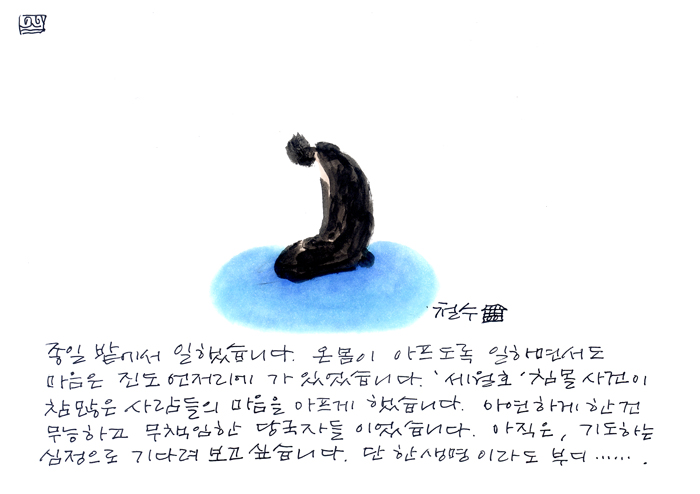 철수
종일 밭에서 일했습니다. 온몸이 아프도록 일하면서도
마음은 진도 언저리에 가 있었습니다. '세월호' 침몰 사건이
참 많은 사람들의 마음을 아프게 했습니다. 아연하게 한 건
무능하고 무책임한 당국자들 이었습니다. 아직은, 기도하는
심정으로 기다려 보고 싶습니다. 단 한 생명 이라도 부디…….